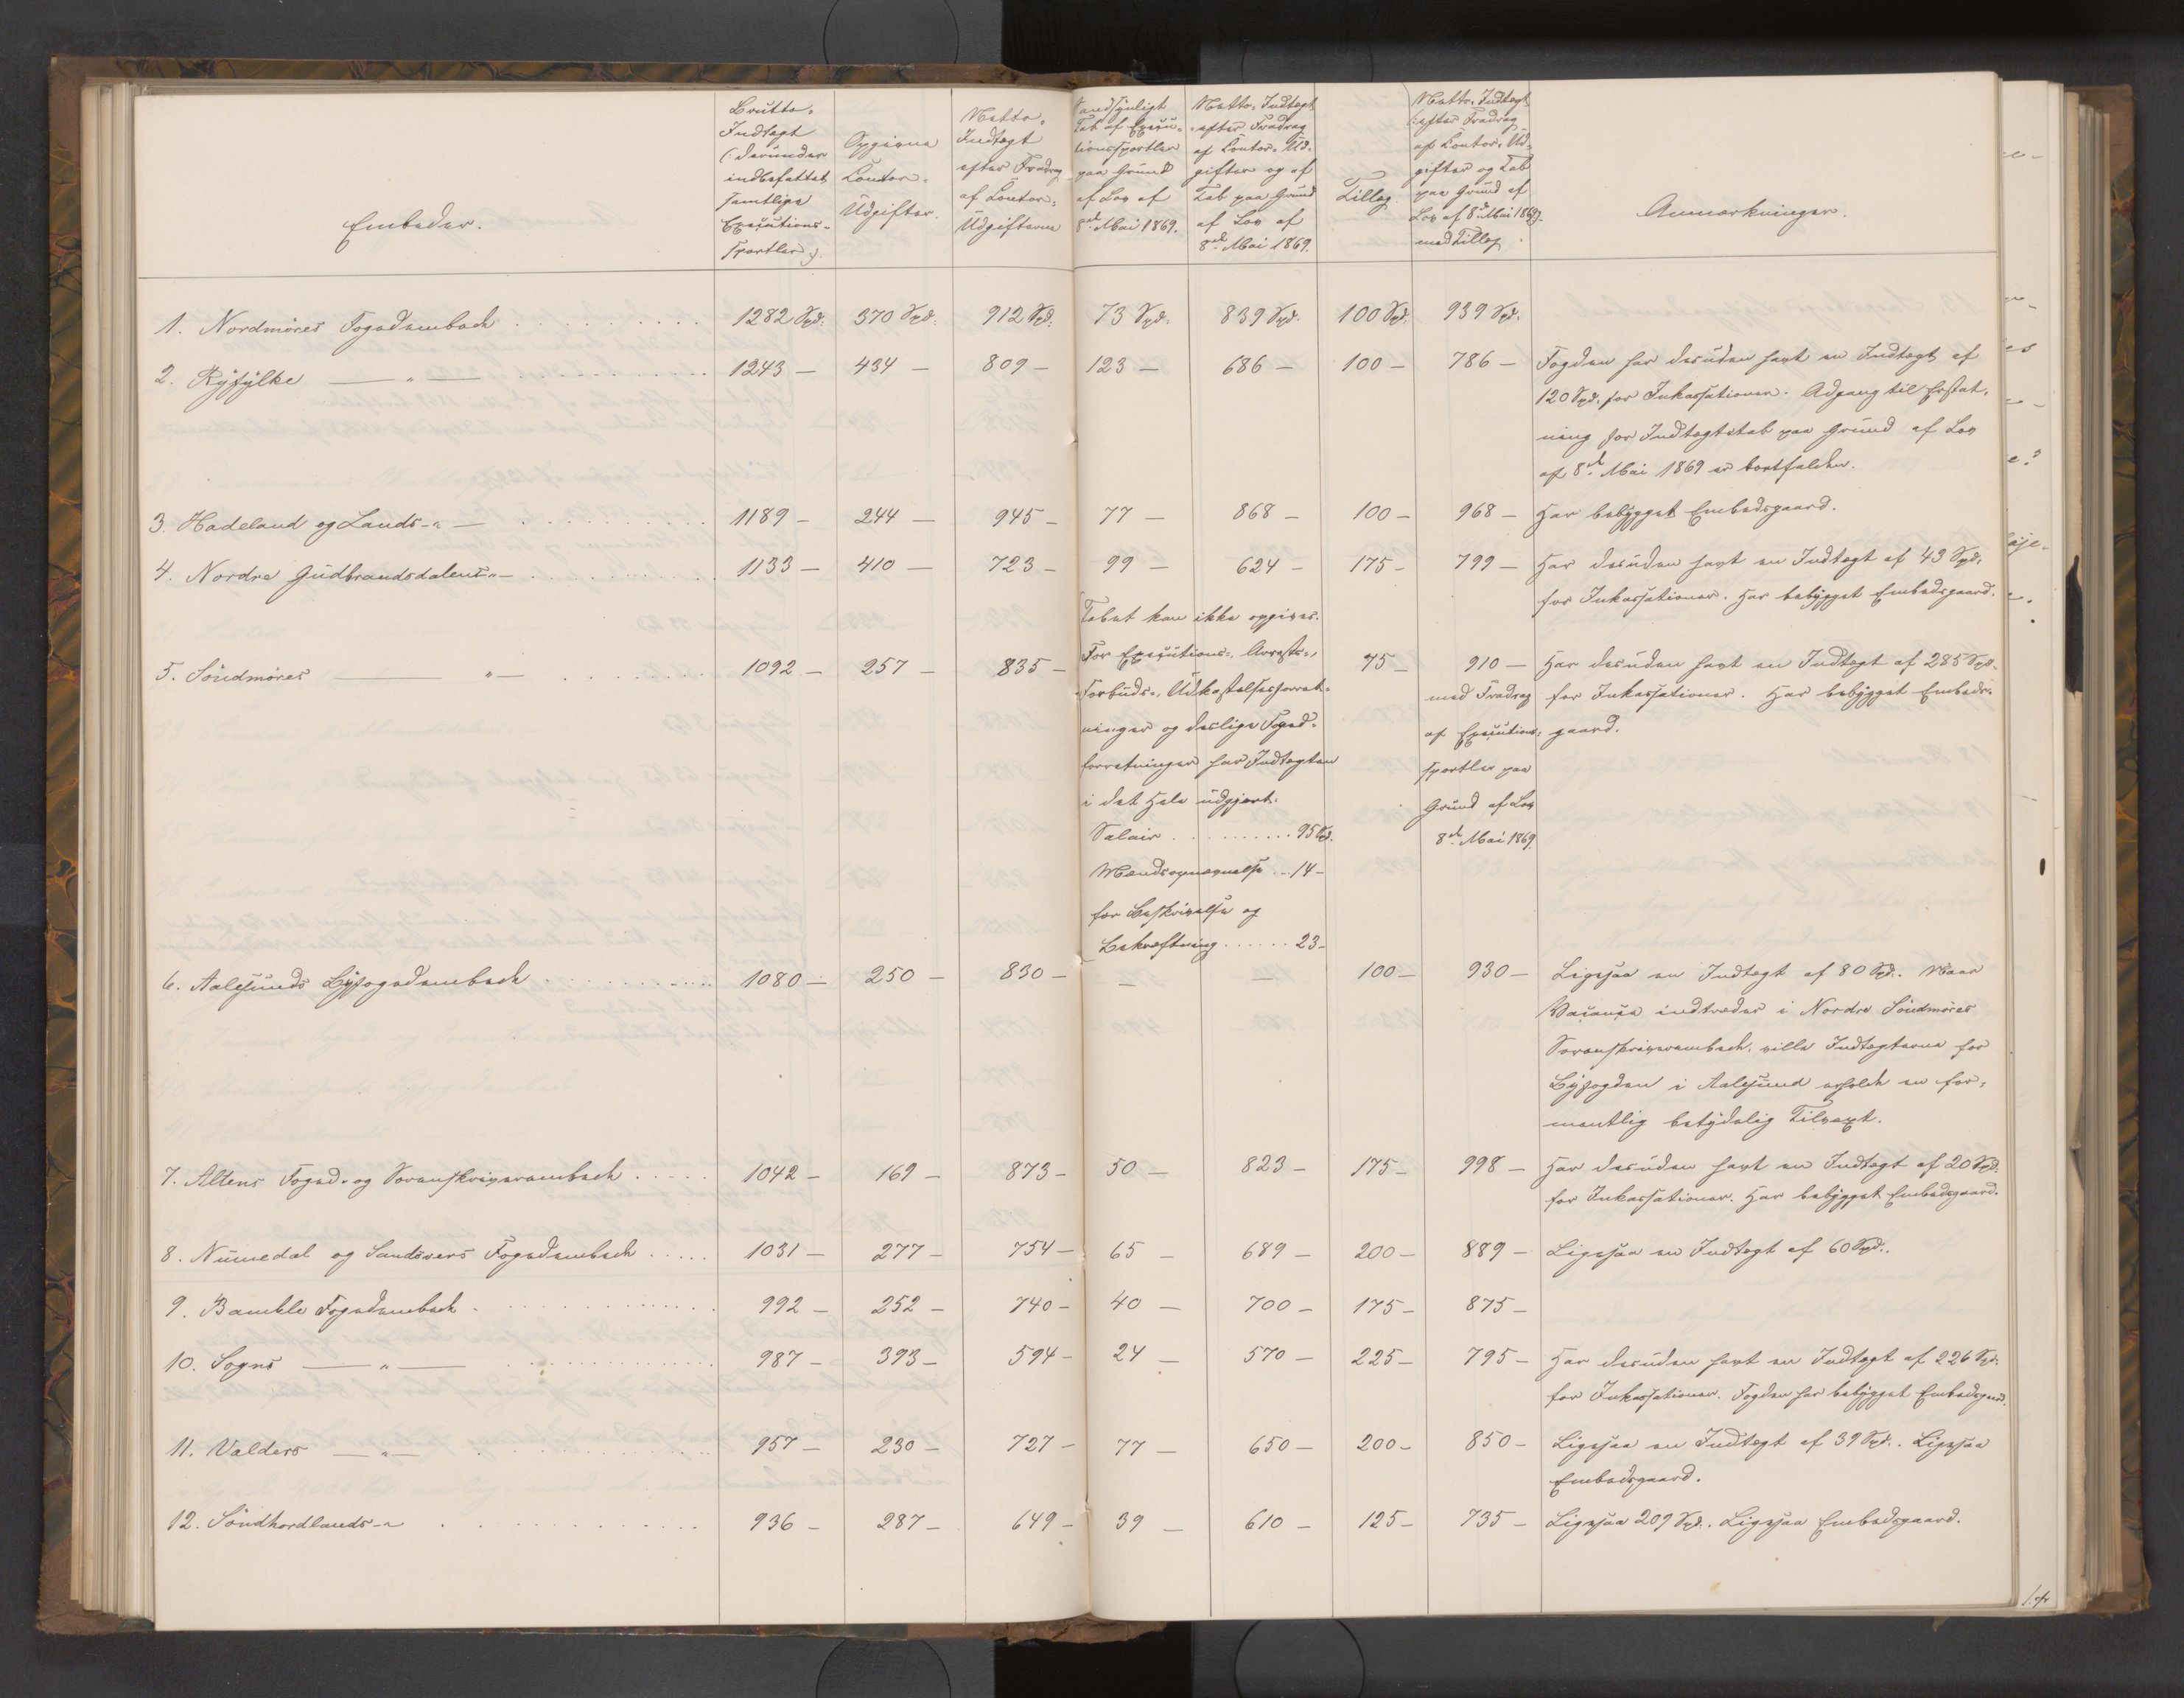 Embeder.
Brutto-
Indtægt
(: derunder
indbefattet
samtlige
Executions-
sportler :).
Opgivne
Contor-
Udgifter.
Netto-
Indtægt
efter Fradrag
af Contor-
Udgifterne
Sandsynligt
Tab af Execu-
tionssportler
paa Grund
af Lov af
8de Mai 1869.
Netto-Indtægt
efter Fradrag
af Contor-Ud-
gifter og af
Tab paa Grund
af Lov af
8de Mai 1869.
Tillæg.
Netto-Indtægt
(: efter Fradrag
af Contor-Ud-
gifter og Tab
paa Grund af
Lov af 8de Mai 1869 :)
med Tillæg.
Anmærkninger.
1. Nordmöres Fogedembede 1282 Spd. 370 Spd. 912 Spd. 73 Spd. 839 Spd. 100 Spd. 939 Spd.
2. Ryfylke — " — 1243 — 434 — 809 — 123 — 686 — 100 — 786 — Fogden har desuden havt en Indtægt af
120 Spd. for Inkassationer. Adgang til Erstat-
ning for Indtægtstab paa Grund af Lov
af 8de Mai 1869 er bortfalden.
3. Hadeland og Lands - " — 1189 — 244 — 945 — 77 — 868 — 100 — 968 — Har bebygget Embedsgaard.
4. Nordre Gudbrandsdalens - " — 1133 — 410 — 723 — 99 — 624 — 175 — 799 — Har desuden havt en Indtægt af 43 Spd.
for Inkassationer. Har bebygget Embedsgaard.
5. Söndmöres — " — 1092 — 257 — 835 —
Tabet kan ikke opgives.
For Executions-, Arrest-,
Forbuds-, Udkastelsesforret-
ninger og deslige Foged-
forretninger har Indtægten
i det Hele udgjort:
Salair 95 Spd.
Mændsopnævnelse 14 —
for Beskrivelse og
Bekræftning 23 —
75 —
910 —
med Fradrag
af Executions-
sportler paa
Grund af Lov
8de Mai 1869.
Har desuden havt en Indtægt af 285 Spd.
for Inkassationer. Har bebygget Embeds-
gaard.
6. Aalesunds Byfogedembede 1080 — 250 — 830 — — — 100 — 930 — Ligesaa en Indtægt af 80 Spd. Naar
Vacance indtræder i Nordre Söndmöres
Sorenskriverembede, ville Indtægterne for
Byfogden i Aalesund erholde en for-
mentlig betydelig Tilvext.
7. Altens Foged- og Sorenskriverembede 1042 — 169 — 873 — 50 — 823 — 175 — 998 — Har desuden havt en Indtægt af 20 Spd.
for Inkassationer. Har bebygget Embedsgaard.
8. Numedal og Sandsvers Fogedembede 1031 — 277 — 754 — 65 — 689 — 200 — 889 — Ligesaa en Indtægt af 60 Spd.
9. Bamble Fogedembede 992 — 252 — 740 — 40 — 700 — 175 — 875 —
10. Sogns — " — 987 — 393 — 594 — 24 — 570 — 225 — 795 — Har desuden havt en Indtægt af 226 Spd.
for Inkassationer. Fogden har bebygget Embedsgaard.
11. Valders — " — 957 — 230 — 727 — 77 — 650 — 200 — 850 — Ligesaa en Indtægt af 39 Spd. Ligesaa
Embedsgaard.
12. Söndhordlands - " 936 — 287 — 649 — 39 — 610 — 125 — 735 — Ligesaa 209 Spd. Ligesaa Embedsgaard.